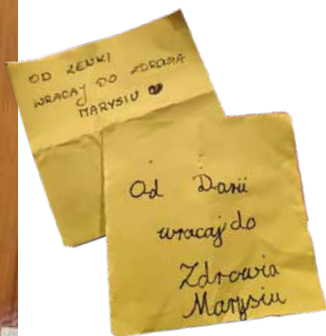 OD LENKI
WRACAJ DO ZDROWIA
MARYSIU ❤
Od Darii
wracaj do
Zdrowia
Marysiu